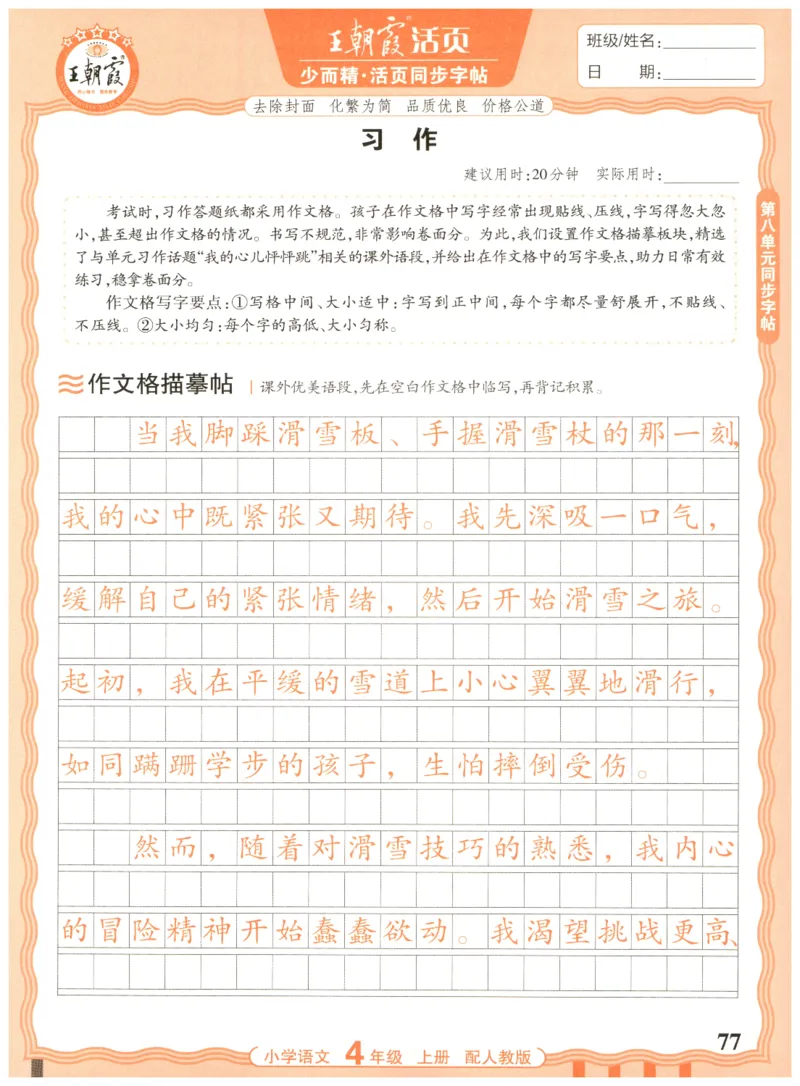 王朝霞
王朝霞®活页
少而精·活页同步字帖
班级/姓名:
日 期:
去除封面 化繁为简 品质优良 价格公道
习 作
建议用时:20分钟 实际用时:
考试时,习作答题纸都采用作文格。孩子在作文格中写字经常出现贴线、压线,字写得忽大忽
小,甚至超出作文格的情况。书写不规范,非常影响卷面分。为此,我们设置作文格描摹板块,精选
了与单元习作话题“我的心儿怦怦跳”相关的课外语段,并给出在作文格中的写字要点,助力日常有效
练习,稳拿卷面分。
作文格写字要点:①写格中间、大小适中:字写到正中间,每个字都尽量舒展开,不贴线、
不压线。②大小均匀:每个字的高低、大小匀称。
第八单元同步字帖
作文格描摹帖 | 课外优美语段,先在空白作文格中临写,再背记积累。
当我脚踩滑雪板、手握滑雪杖的那一刻,
我的心中既紧张又期待。我先深吸一口气,
缓解自己的紧张情绪,然后开始滑雪之旅。
起初,我在平缓的雪道上小心翼翼地滑行,
如同蹒跚学步的孩子,生怕摔倒受伤。
然而,随着对滑雪技巧的熟悉,我内心
的冒险精神开始蠢蠢欲动。我渴望挑战更高、
77
小学语文 4年级 上册 配人教版